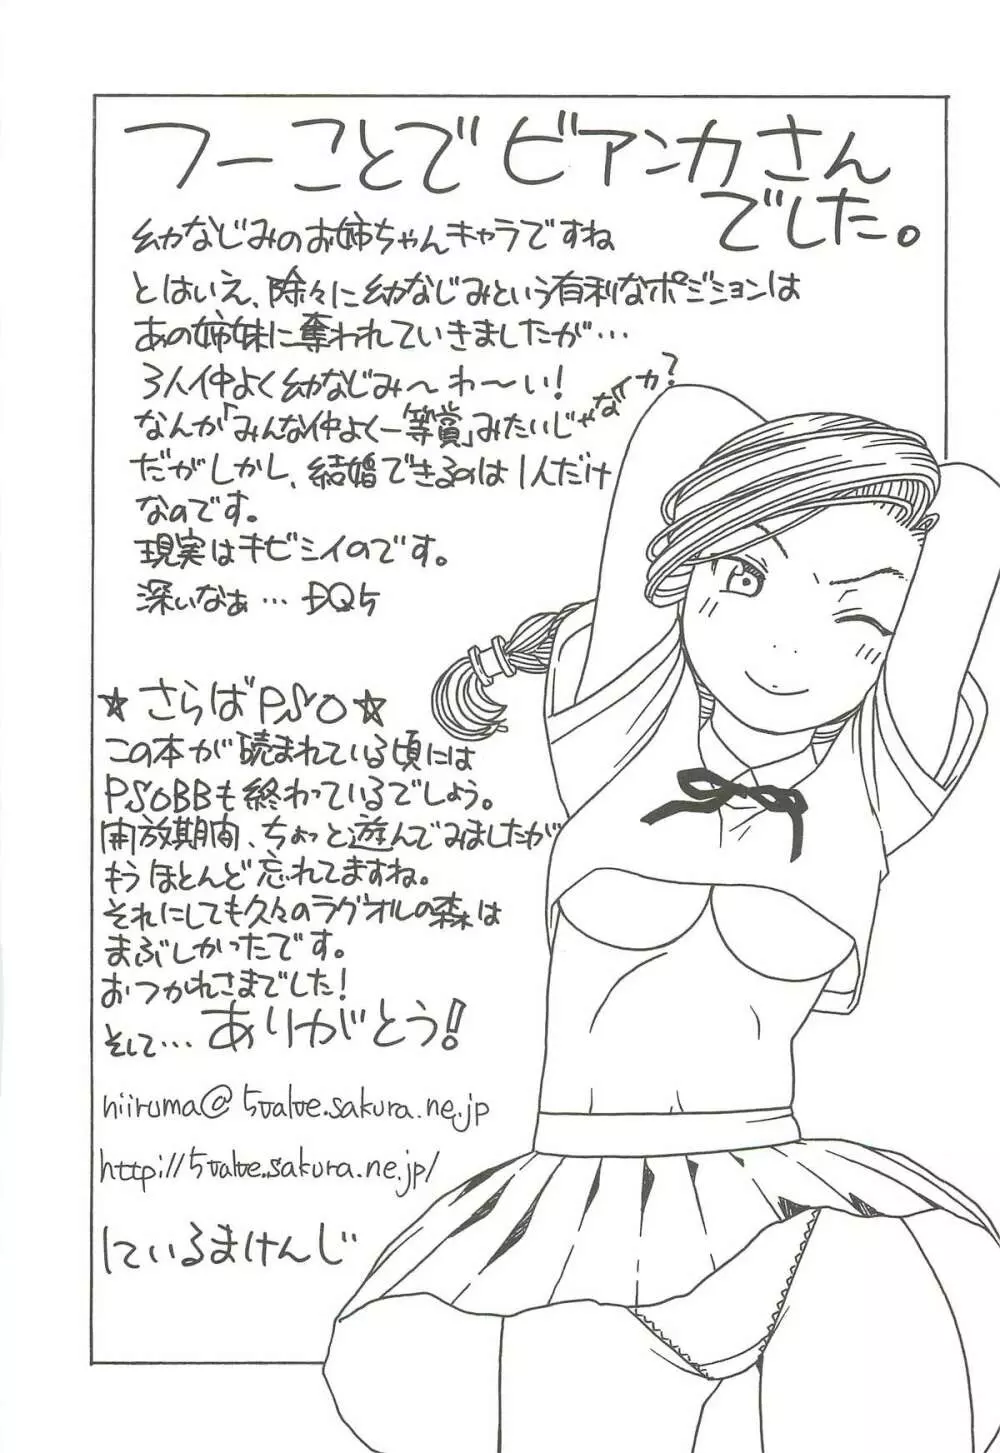 つーことでビアンカさん
でした。
幼なじみのお姉ちゃんキャラですね
とはいえ、除々に幼なじみという有利なポジションは
あの姉妹に奪われていきましたが…
3人仲よく幼なじみ～わ～い！
なんか「みんな仲よく一等賞」みたいじゃないか？
だがしかし、結婚できるのは1人だけ
なのです。
現実はキビシイのです。
深いなぁ…DQ5
☆さらばPSO☆
この本が読まれている頃には
PSOBBも終わっているでしょう。
開放期間、ちょっと遊んでみましたが
もうほとんど忘れてますね。
それにしても久々のラグオルの森は
まぶしかったです。
おつかれさまでした！
そして…ありがとう！
niiruma@5valve.sakura.ne.jp
http://5valve.sakura.ne.jp/
にいるまけんじ